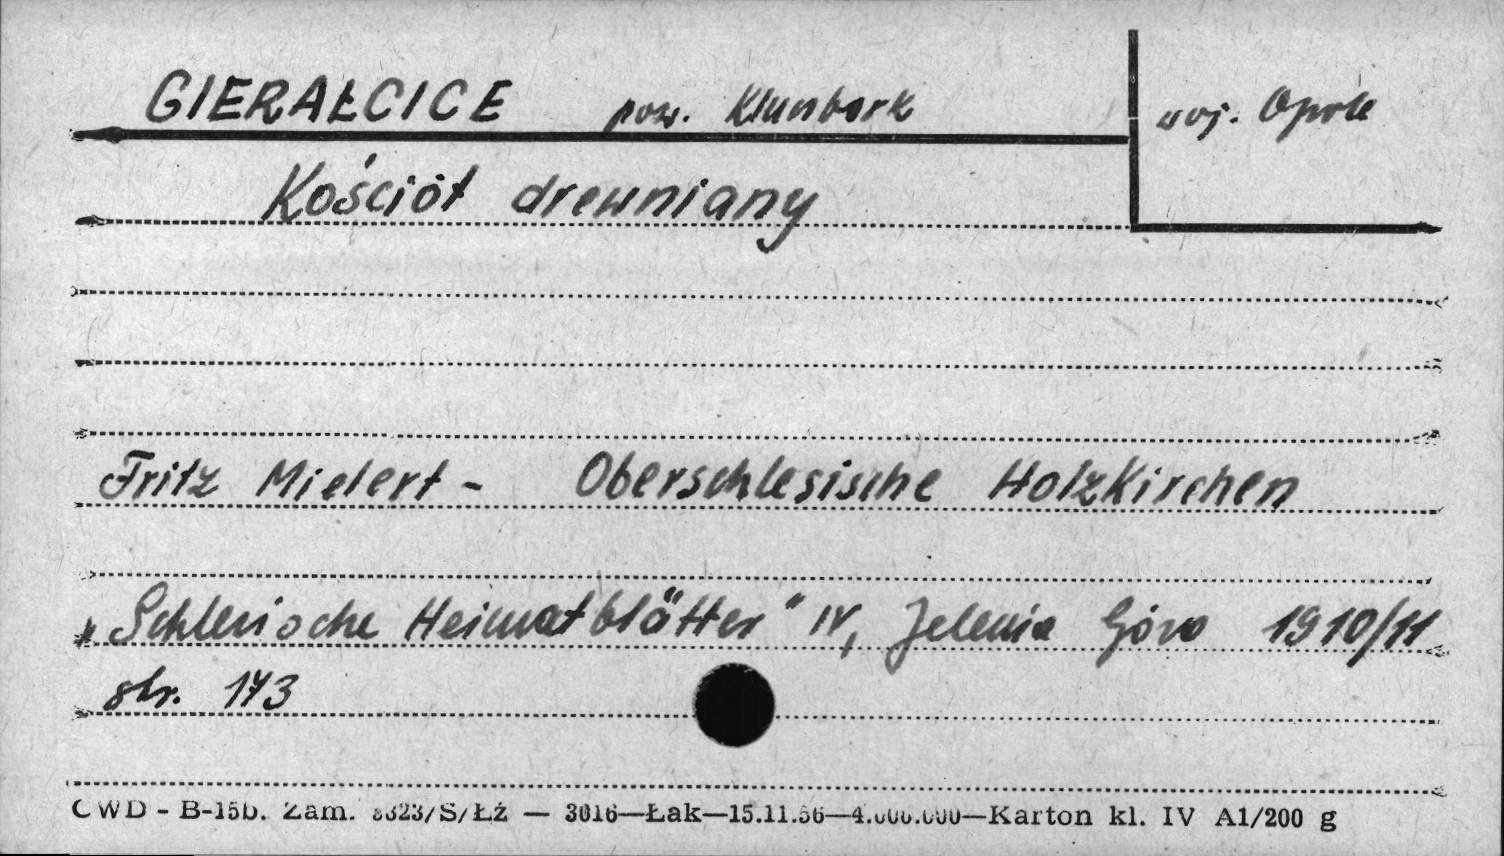 GIERAŁCICE pow. Kluczbork woj. Opole
Kościół drewniany
Fritz Mielert - Oberschlesische Holzkirchen
„Schlesische Heimatblätter" IV, Jelenia Góra 1910/11
str. 173
CWD - B-15b. Zam. 8323/S/ŁŹ — 3016—Łak—15.11.56—4.000.000—Karton kl. IV A1/200 g